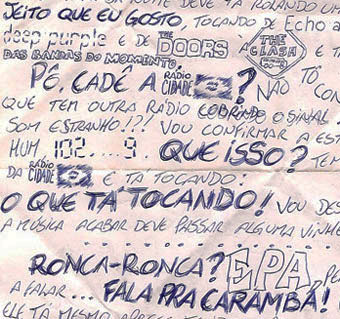 DEVE TÁ ROLANDO UM
JEITO QUE EU GOSTO, TOCANDO DE Echo a
deep purple E DE THE DOORS A THE CLASH E T
DAS BANDAS DO MOMENTO.
PÊ, CADÊ A RÁDIO CIDADE? NÃO TÔ
QUE TEM OUTRA RÁDIO COBRINDO O SINAL.
SOM ESTRANHO!?! VOU CONFIRMAR A EST
HUM 102....9. QUE ISSO? TEM
DA RÁDIO CIDADE E TÁ TOCANDO:
O QUE TÁ TOCANDO! VOU DES
A MÚSICA ACABAR DEVE PASSAR ALGUMA VINHE
RONCA-RONCA? EPA, PE
A FALAR... FALA PRA CARAMBA!
ELE TÁ MESMO